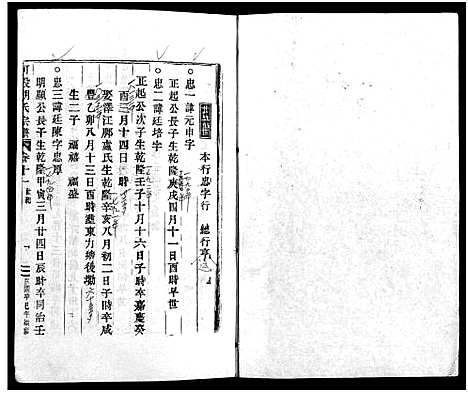 本行忠字行 總行亨
忠一諱元申字
正起公長子生乾隆庚戌四月十一日酉時早世
忠二諱廷培字
正起公次子生乾隆壬子十月十六日子時卒嘉慶癸
酉三月十四日 時
娶澤江鄭盧氏生乾隆辛亥八月初二日子時卒咸
豐乙卯八月十三日酉時葬東力 後
生二子 福禧 福盛
忠三諱廷陳字忠厚
明顯公長子生乾隆甲寅三月廿四日辰時卒同治壬
胡氏宗譜 卷十一